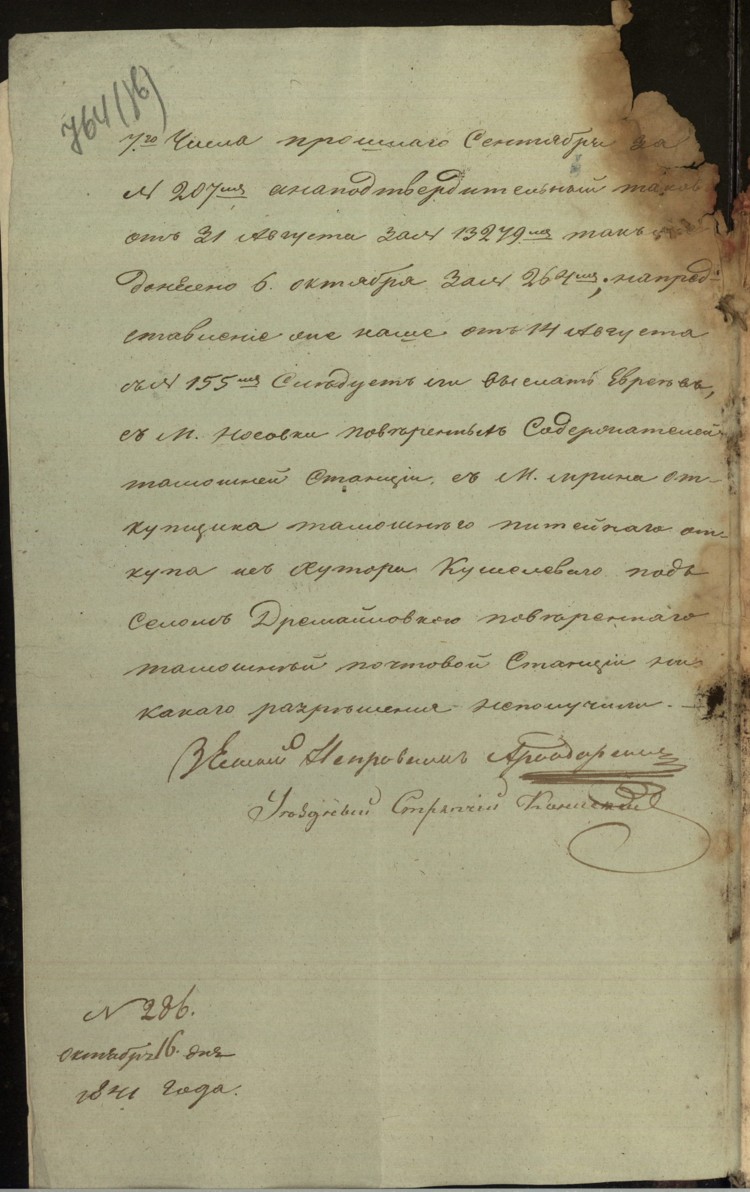 764 (16)
7го Числа прошлаго Сентября за
№ 207мъ анаподтвердительный таков
отъ 31 Августа за№ 13279мъ такъ
донесено 6. октября за№ 264мъ; напред-
ставленіе же наше отъ 14 Августа
за№ 155мъ Слѣдуетъ ли выслать Евреевъ,
съ М. Носовки повѣренныхъ Содержателей
тамошней Станціи, съ М. Мрина от-
купщика тамошнего питейнаго от-
купа изъ Хутора Кушелеваго подъ
Селомъ Дремайловкою повѣреннаго
тамошней почтовой Станціи ни
какаго разрѣшения неполучили. —
Земскій Исправникъ
Уѣздный Стряпчій
№ 286.
октября 16. дня
1841 года.